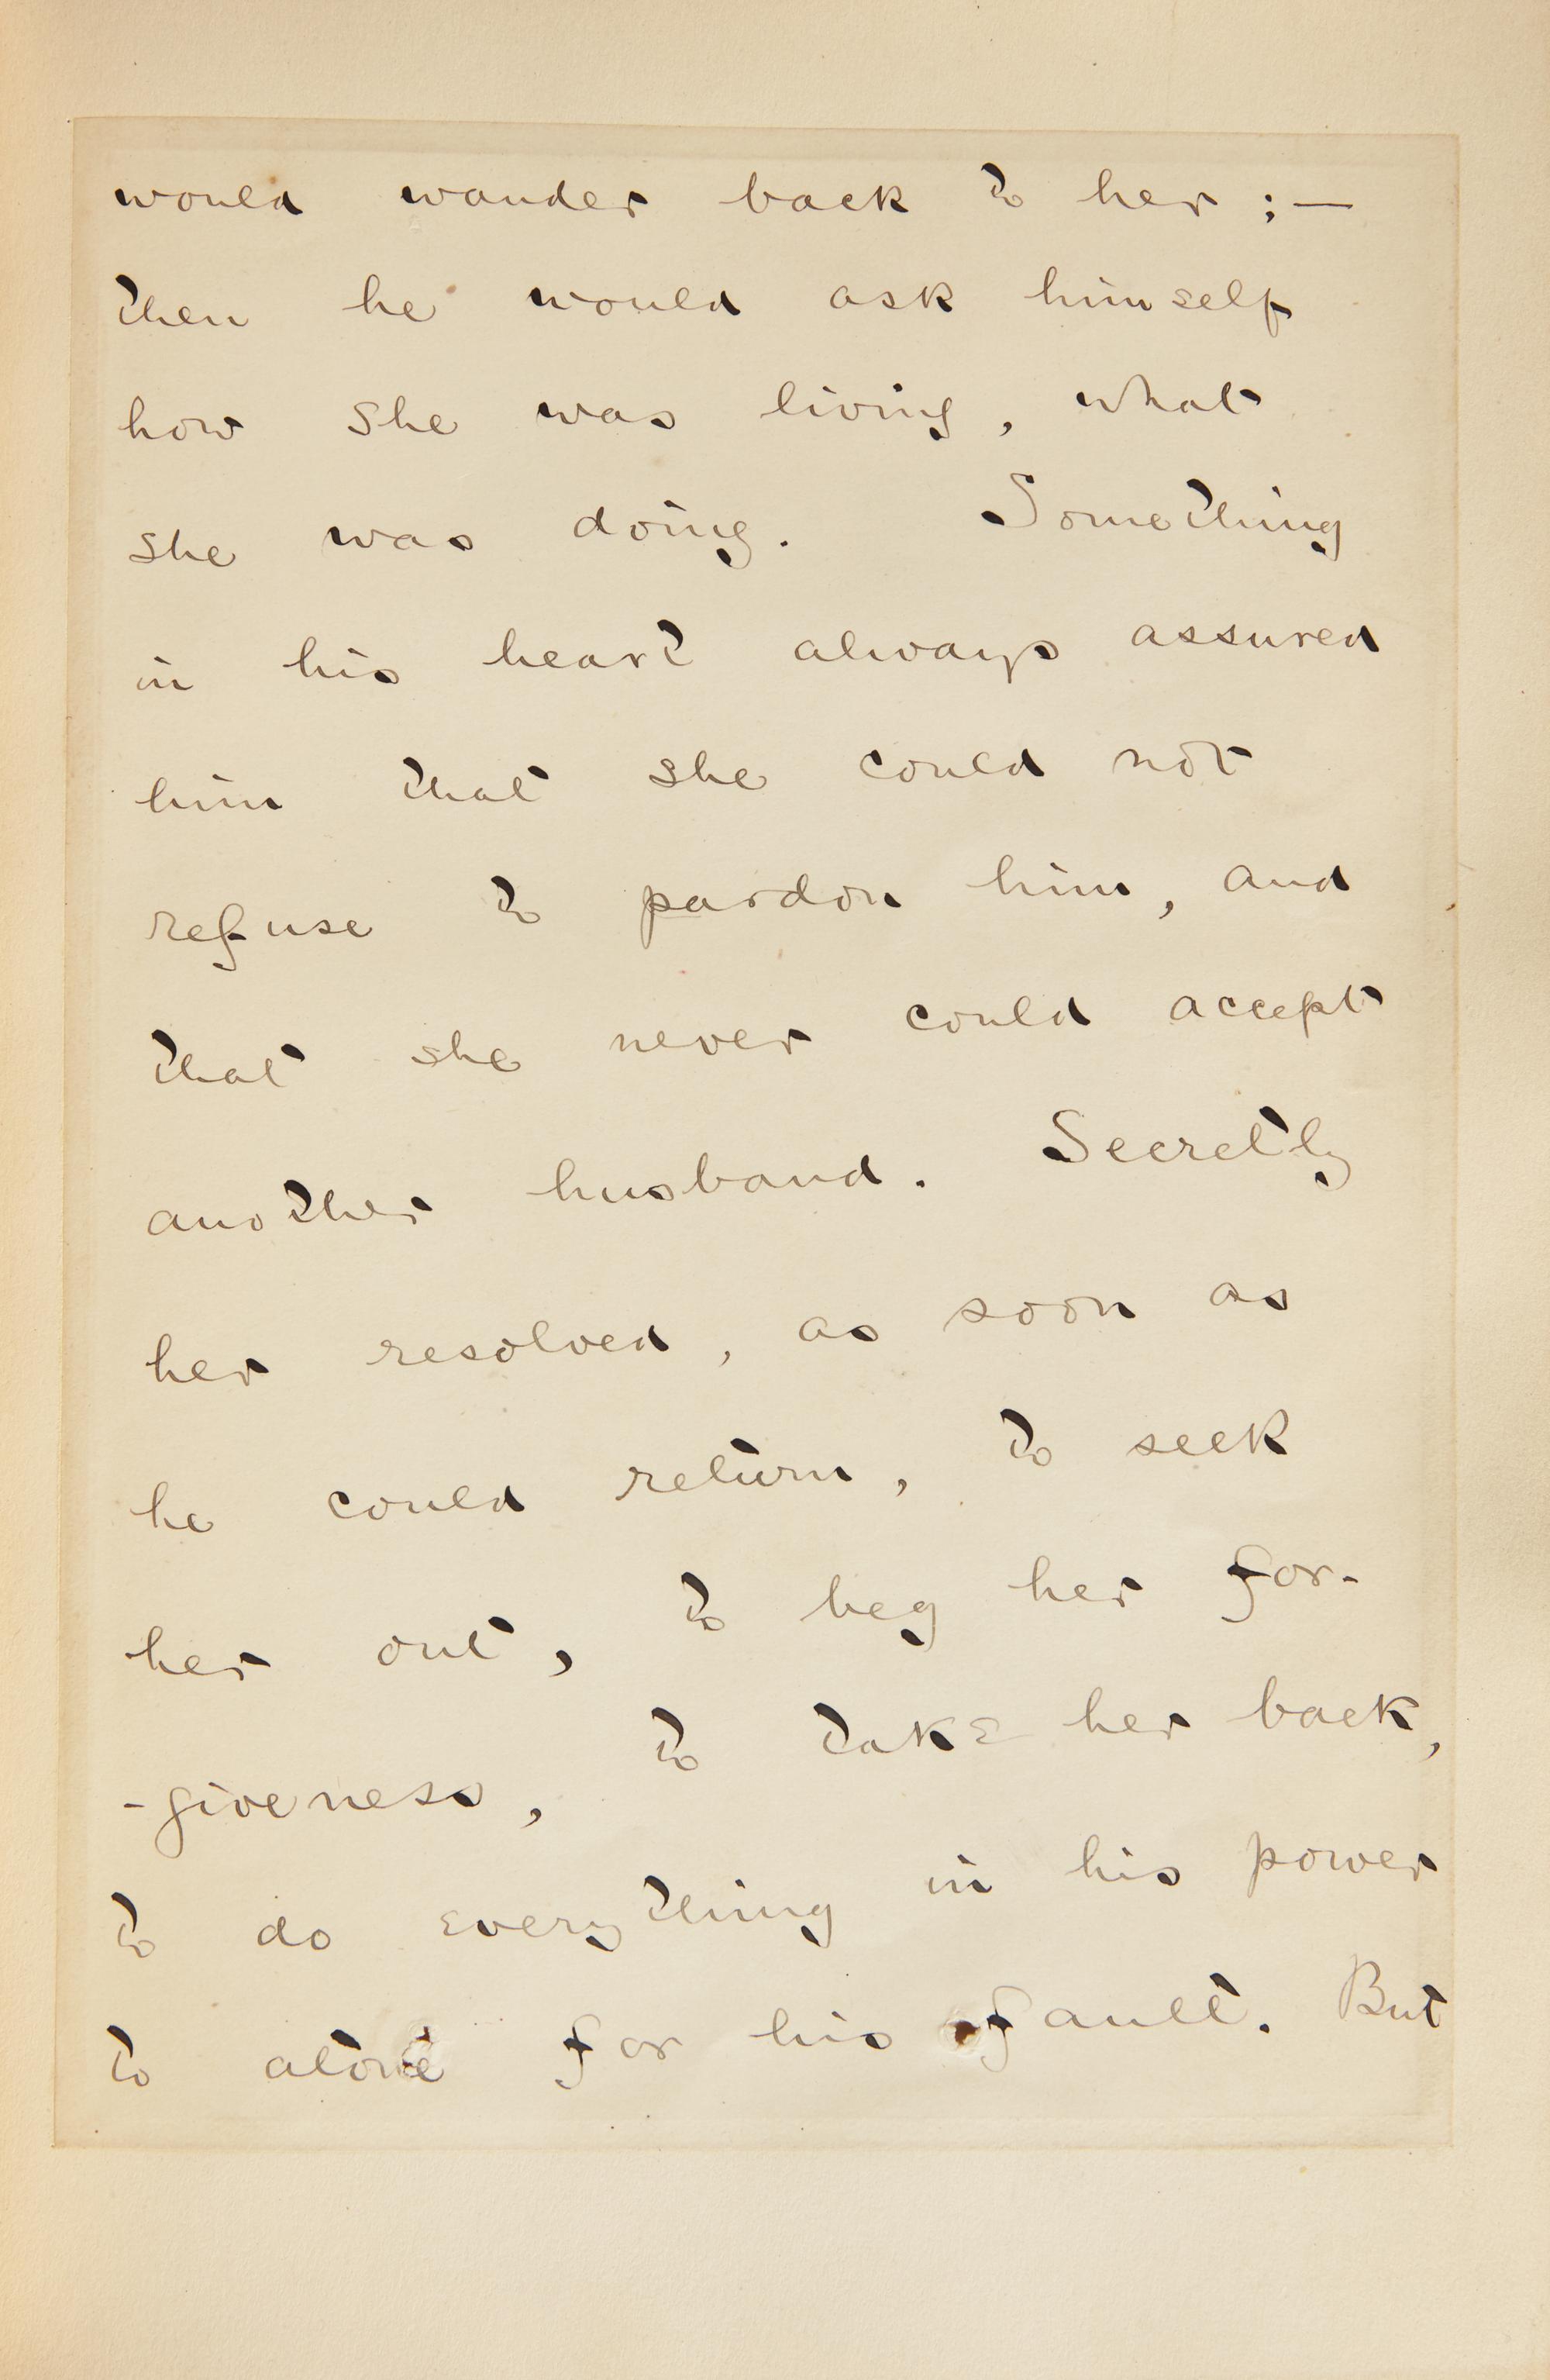 would wander back to her ; —
then he would ask himself
how she was living, what
she was doing. Something
in his heart always assured
him that she could not
refuse to pardon him, and
that she never could accept
another husband. Secretly
her resolved, as soon as
he could return, to seek
her out, to beg her for-
-giveness, to take her back,
to do everything in his power
to atone for his fault. But